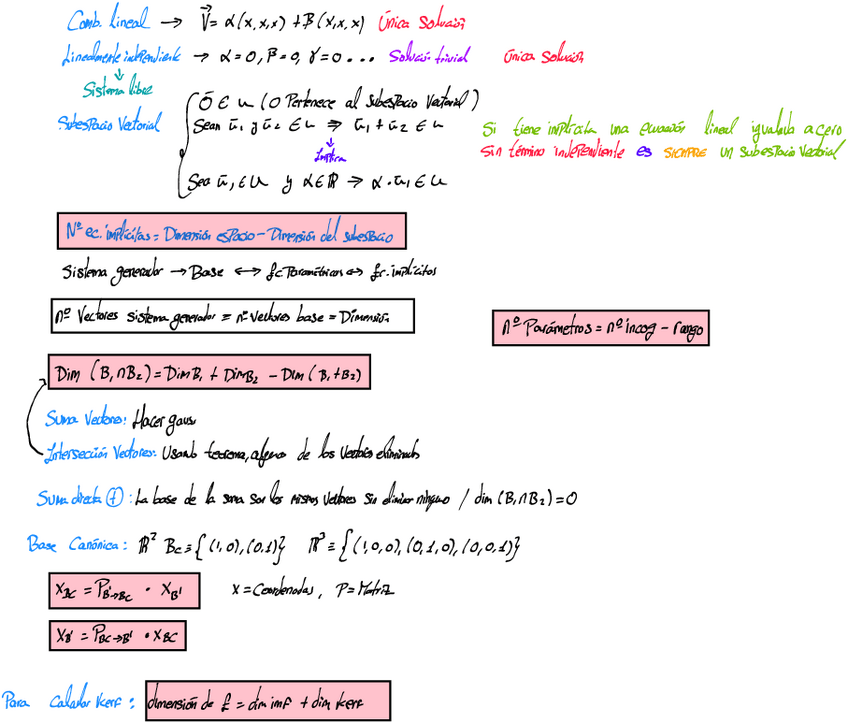 Comb. lineal → V⃗ = α(x,x,x) + β(x,x,x) Única Solución
Linealmente independiente → α=0, β=0, γ=0 ... Solución trivial Única Solución
↓
Sistema libre
Subespacio Vectorial
0̄ ∈ u (0 Pertenece al subespacio Vectorial)
Sean ū₁ y ū₂ ∈ u ⇒ ū₁ + ū₂ ∈ u
↓
Implica
Sea ū₁ ∈ u y α ∈ ℝ ⇒ α · ū₁ ∈ u
Si tiene implícita una ecuación lineal igualada a cero
Sin término independiente es SIEMPRE un subespacio Vectorial
Nº ec. implícitas = Dimensión espacio - Dimensión del subespacio
Sistema generador → Base ↔ Ec. Paramétricas ↔ Ec. implícitas
nº Vectores sistema generador = nº Vectores base = Dimensión
nº Parámetros = nº incog - rango
Dim (B₁∩B₂) = Dim B₁ + Dim B₂ - Dim (B₁+B₂)
Suma Vectores: Hacer gauss
Intersección Vectores: Usando teorema, alguno de los Vectores eliminados
Suma directa ⊕: La base de la suma son los mismos vectores sin eliminar ninguno / dim (B₁∩B₂) = 0
Base Canónica: ℝ² Bc ≡ {(1,0), (0,1)} ℝ³ ≡ {(1,0,0), (0,1,0), (0,0,1)}
X_BC = P_B'→BC · X_B' X = Coordenadas, P = Matriz
X_B' = P_BC→B' · X_BC
Para calcular Kerf: dimensión de f = dim imf + dim kerf